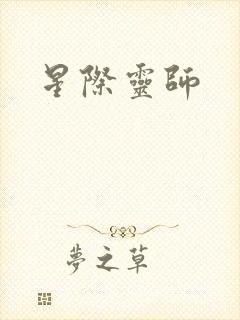 星際靈師
夢之草